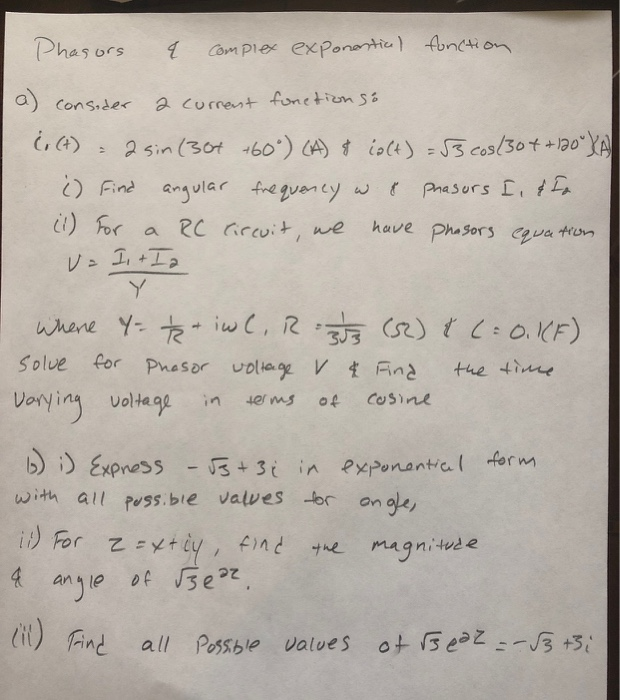 Phasors & complex exponential function
a) consider 2 current functions:
i₁(t) = 2 sin(30t +60°) (A) & i₂(t) = √3 cos(30t +120°)(A)
i) Find angular frequency w & phasors I₁ & I₂
ii) For a RC circuit, we have phasors equation
V = I₁ + I₂
Y
where Y = 1/R + iwC, R = 1/3√3 (Ω) & C = 0.1(F)
Solve for phasor voltage V & Find the time
Varying voltage in terms of cosine
b) i) Express -√3 + 3i in exponential form
with all possible values for angle,
ii) For z = x+iy, find the magnitude
& angle of √3e²ᶻ.
iii) Find all Possible values of √3e²ᶻ = -√3 +3i